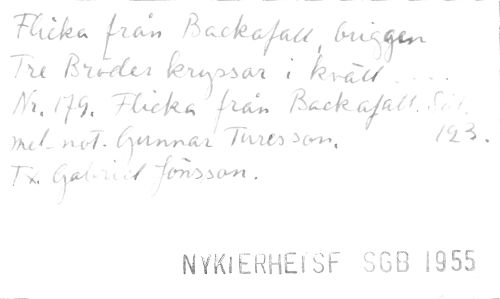 Flicka från Backafall, briggen
Tre Bröder kryssar i kväll .....
Nr. 179. Flicka från Backafall.
mel-not. Gunnar Turesson. 193.
Tx. Gabriel Jönsson.
NYKIERHEISF SGB 1955